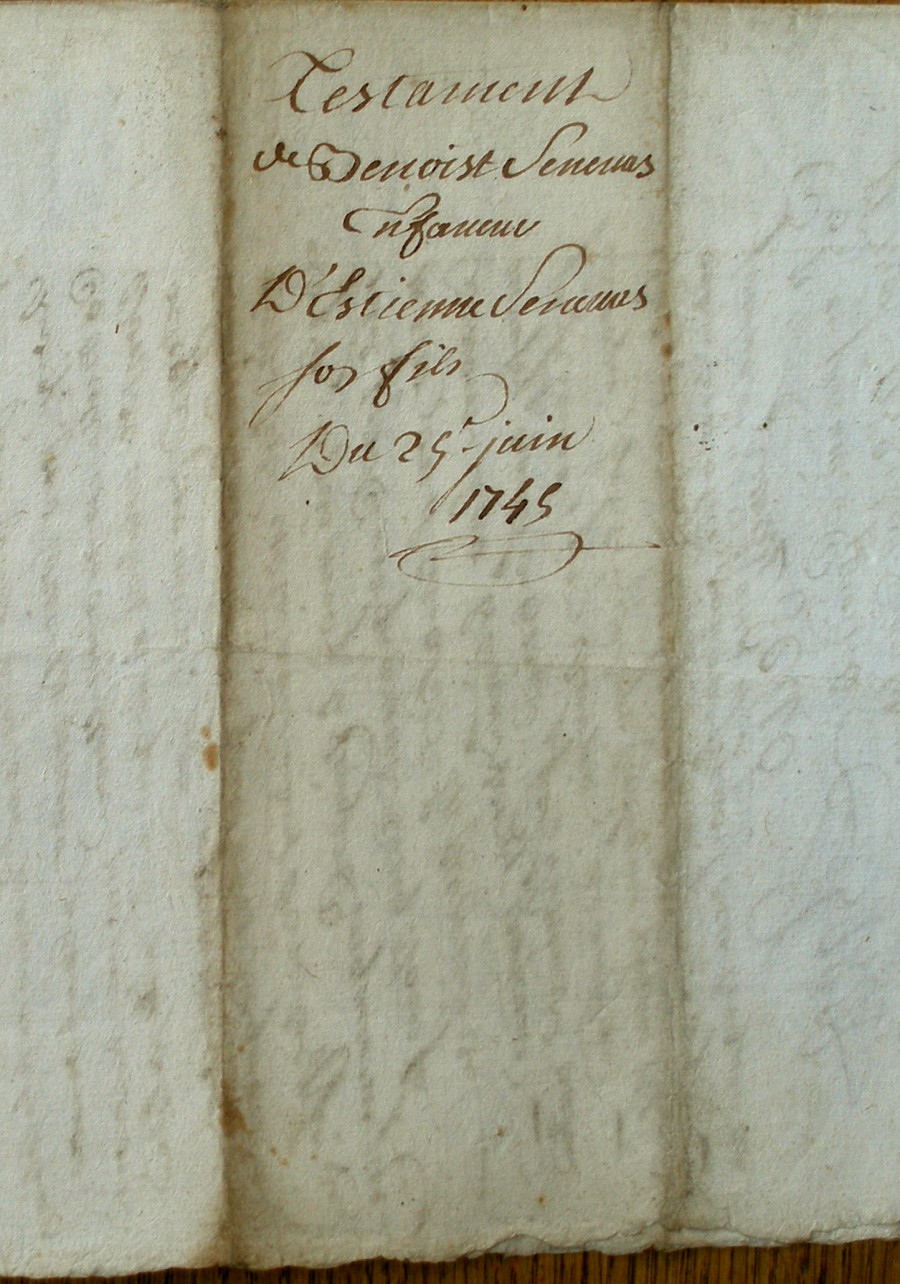 Testament
de Benoist Senenas
En faveur
D'Estienne Senenas
son fils
Du 25e juin
1745